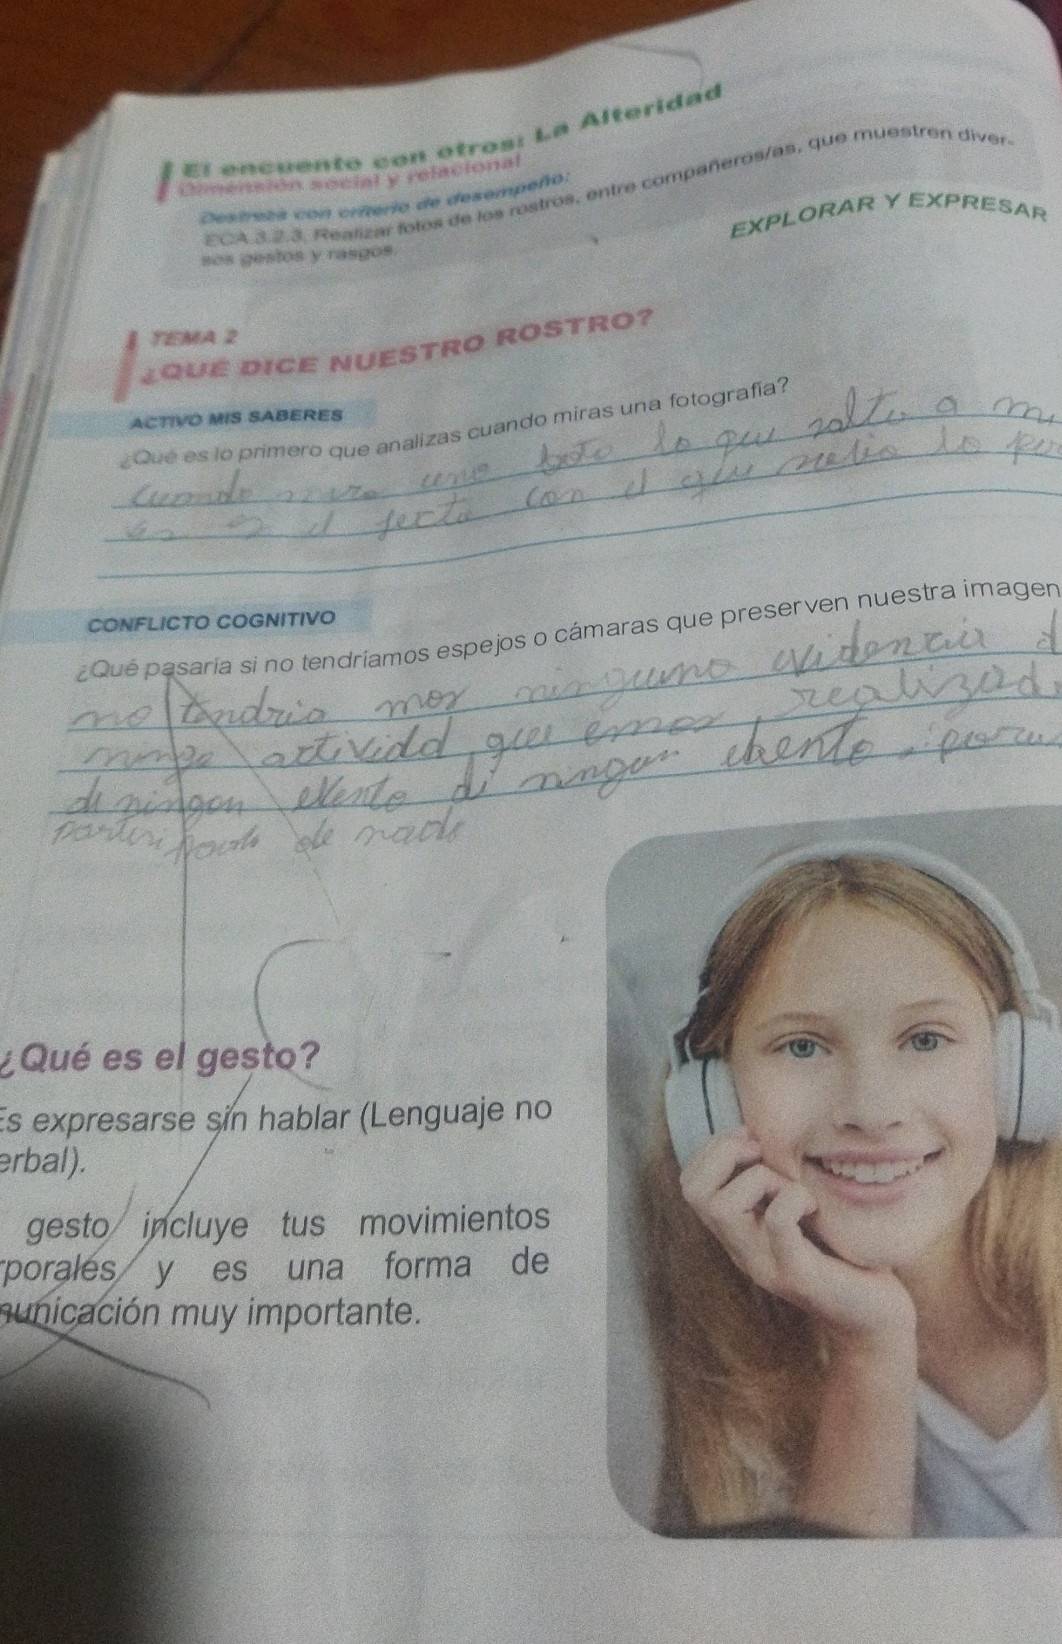 El encuento con otros: La Alteridad
Dimensión social y relacional
Destreza con criterio de desempeño:
ECA.3.2.3. Realizar fotos de los rostros, entre compañeros/as, que muestren diver-
sos gestos y rasgos.
EXPLORAR Y EXPRESAR
TEMA 2
¿QUÉ DICE NUESTRO ROSTRO?
ACTIVO MIS SABERES
¿Qué es lo primero que analizas cuando miras una fotografía?
cuando miro una foto lo que salta a mi
es el fecto con el que
CONFLICTO COGNITIVO
¿Qué pasaría si no tendríamos espejos o cámaras que preserven nuestra imagen
no tendria mos ninguna evidencia d
actividad que emos realizad
de ningon evento di ningun ebento, para
de nada
¿Qué es el gesto?
Es expresarse sin hablar (Lenguaje no
erbal).
gesto incluye tus movimientos
rporales y es una forma de
municación muy importante.